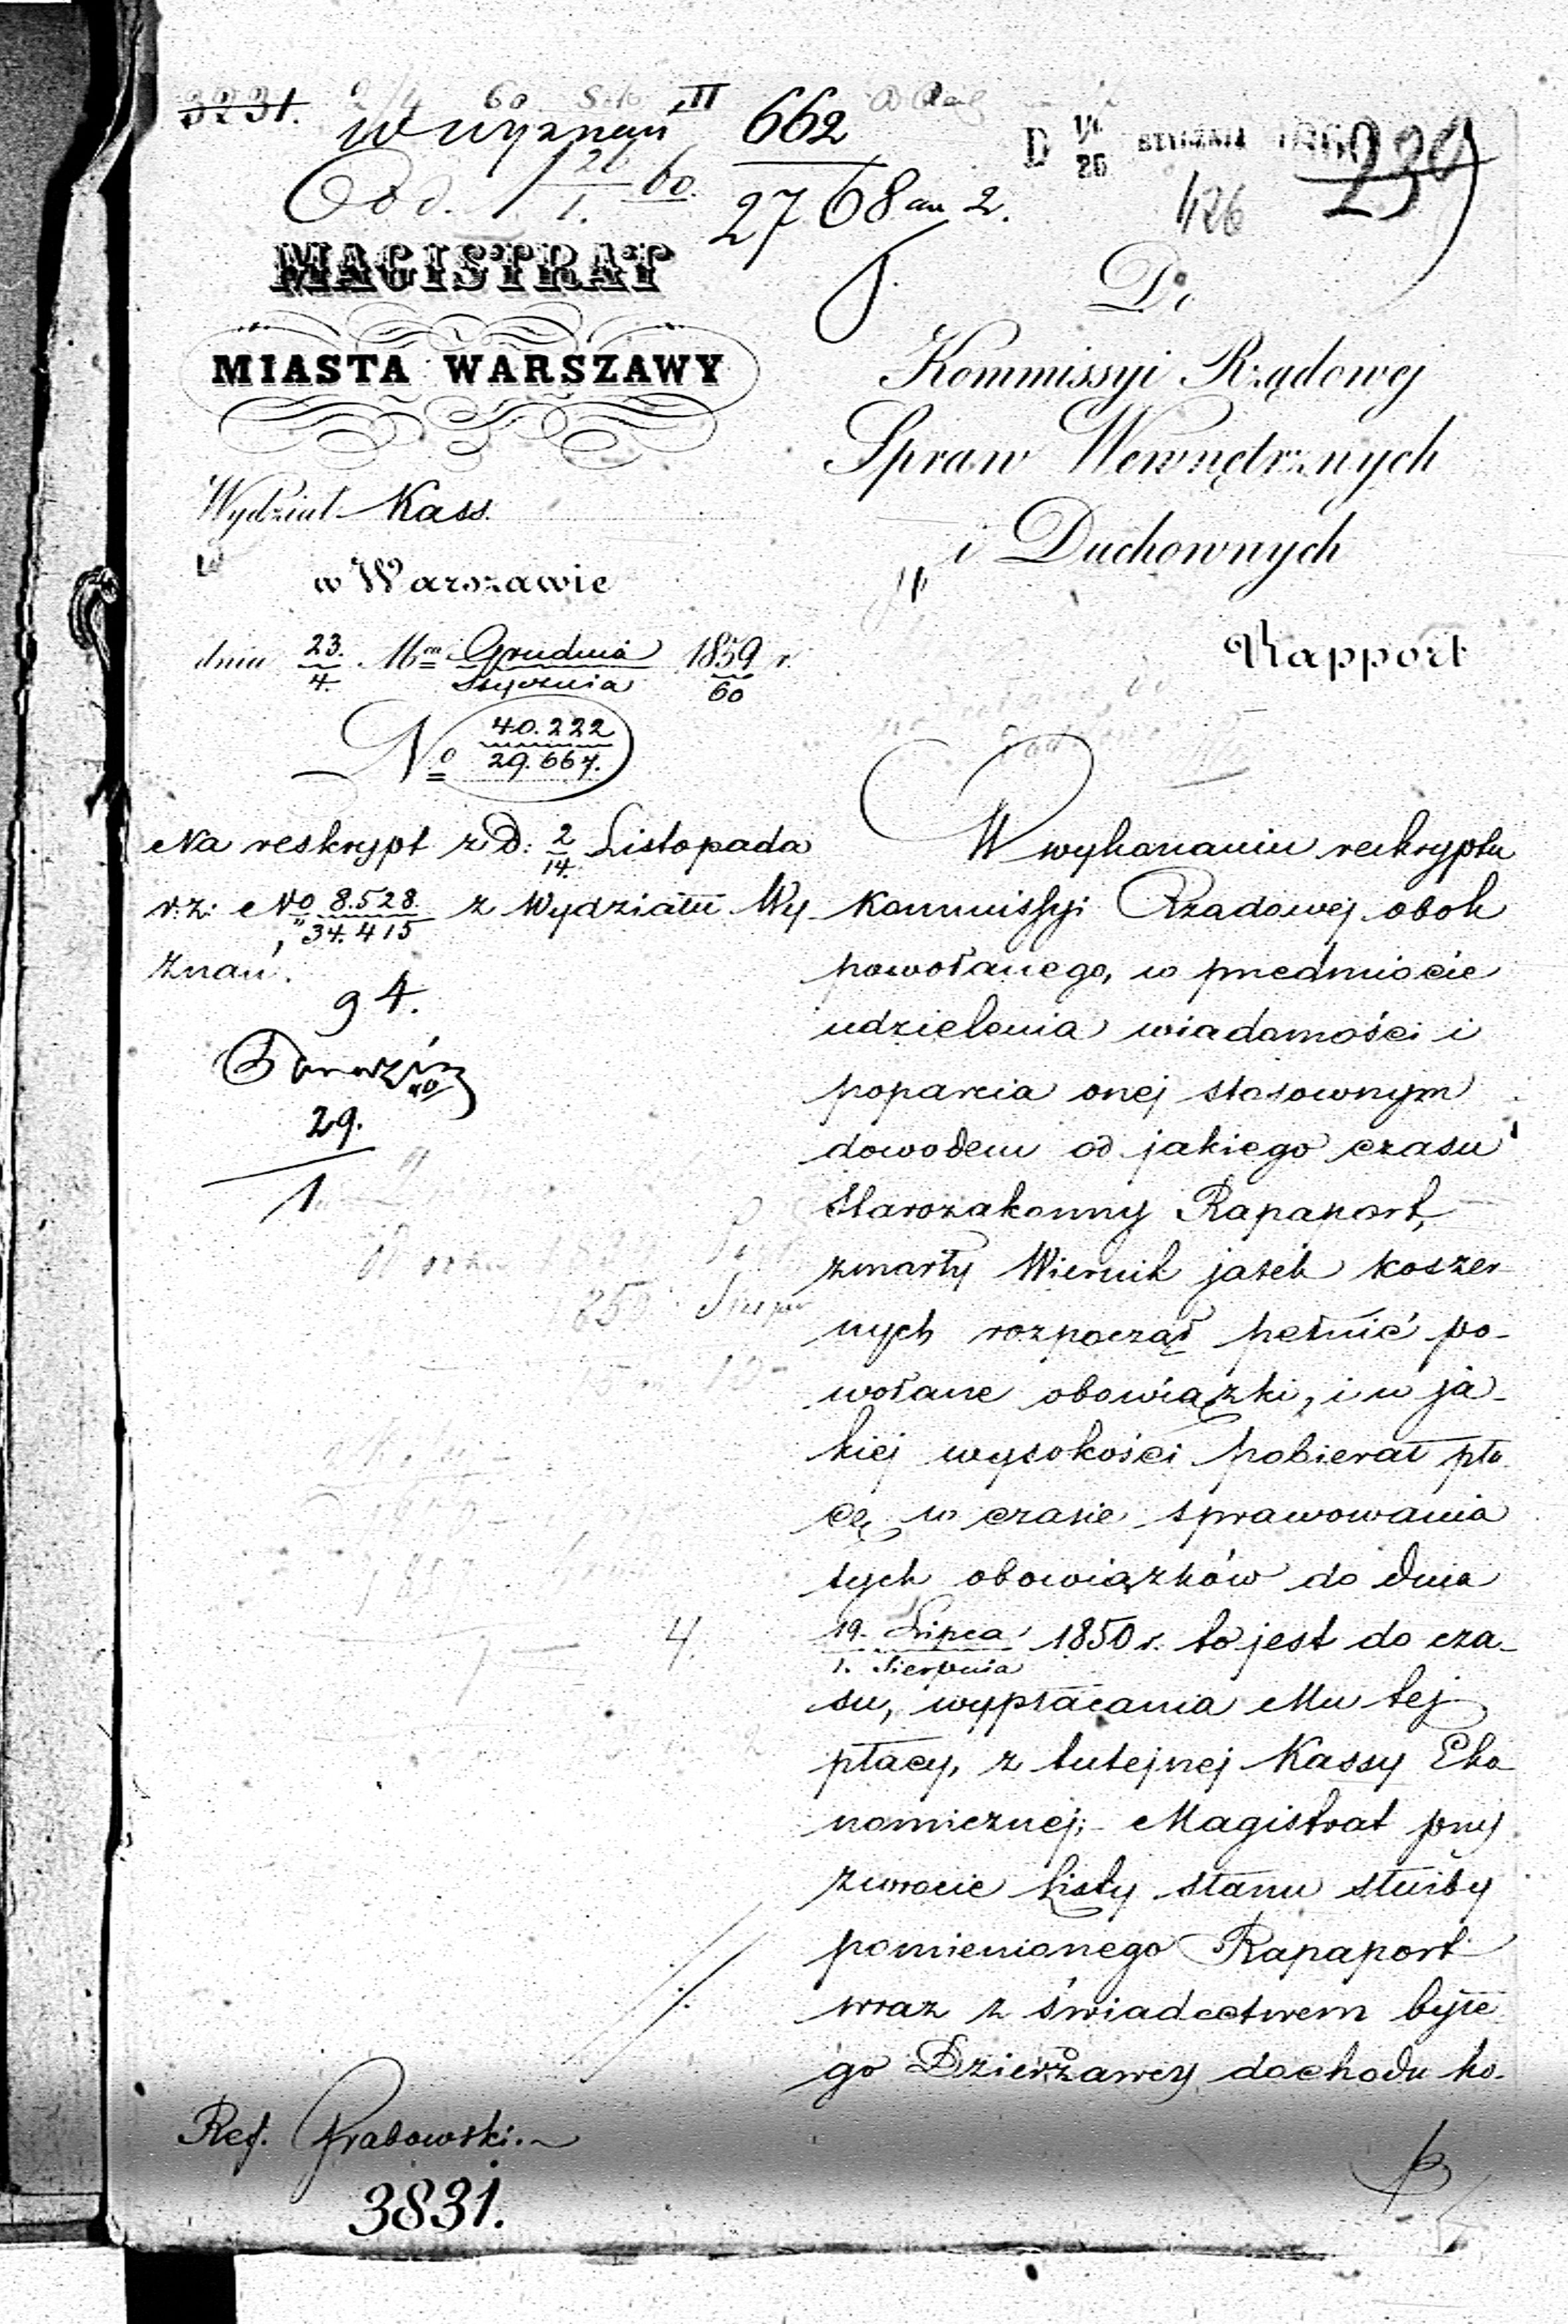 3231.
II
W wyznań 662
2768 an 2.
STYCZNIA
239
426
MAGISTRAT
MIASTA WARSZAWY
Wydział Kass.
w Warszawie
dnia 23./4. Mca Grudnia/Stycznia 1859/60 r.
No 40.222/29.667.
Na reskrypt z D: 2/14. Listopada
r.z: No 8.528./34.415 z Wydziału Wy
znań.
94.
29.
1
4.
Ref. Grabowski.
3831.
Do
Kommissyi Rządowej
Spraw Wewnętrznych
i Duchownych
Rapport
W wykonaniu reskryptu
Kommissyi Rządowej obok
powołanego, w przedmiocie
udzielenia wiadomości i
poparcia onej stosownym
dowodem od jakiego czasu
Starozakonny Rapaport,
zmarły Wiernik jatek koszer-
nych rozpoczął pełnić po-
wołane obowiązki, i w ja-
kiej wysokości pobierał pła
cę w czasie sprawowania
tych obowiązków do dnia
19. Lipca/1. Sierpnia 1850 r. to jest do cza-
su, wypłacania Mu tej
płacy, z tutejszej Kassy Eko
nomicznej; Magistrat przy
zwrocie Listy stanu służby
pomienionego Rapaport
wraz z świadectwem byłe
go Dzierżawcy dochodu ko-